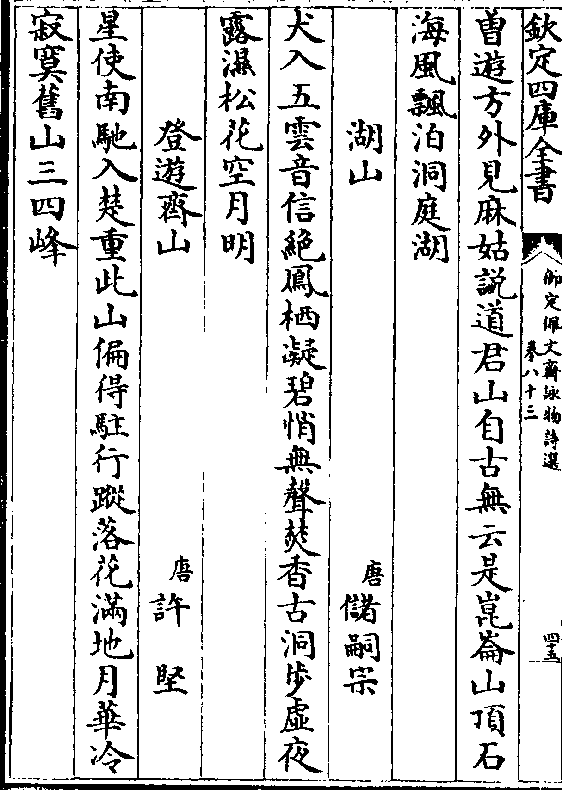 欽定四庫全書
御定佩文齋詠物詩選
卷八十三
四五
曽遊方外見麻姑説道君山自古無云是崑崙山頂石
海風飄泊洞庭湖
湖山
唐儲嗣宗
犬入五雲音信絶鳳栖凝碧悄無聲焚香古洞步虛夜
露濕松花空月明
登遊齊山
唐許堅
星使南馳入楚重此山偏得駐行蹤落花滿地月華冷
寂寞舊山三四峰